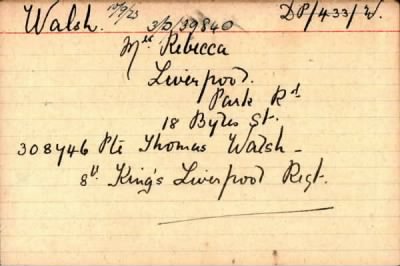 Walsh. 13/9/23 3/D/39840 DP/433/W.
Mrs Rebecca
Liverpool.
Park Rd
18 Byles St.
308746 Pte Thomas Walsh -
8th King's Liverpool Regt.